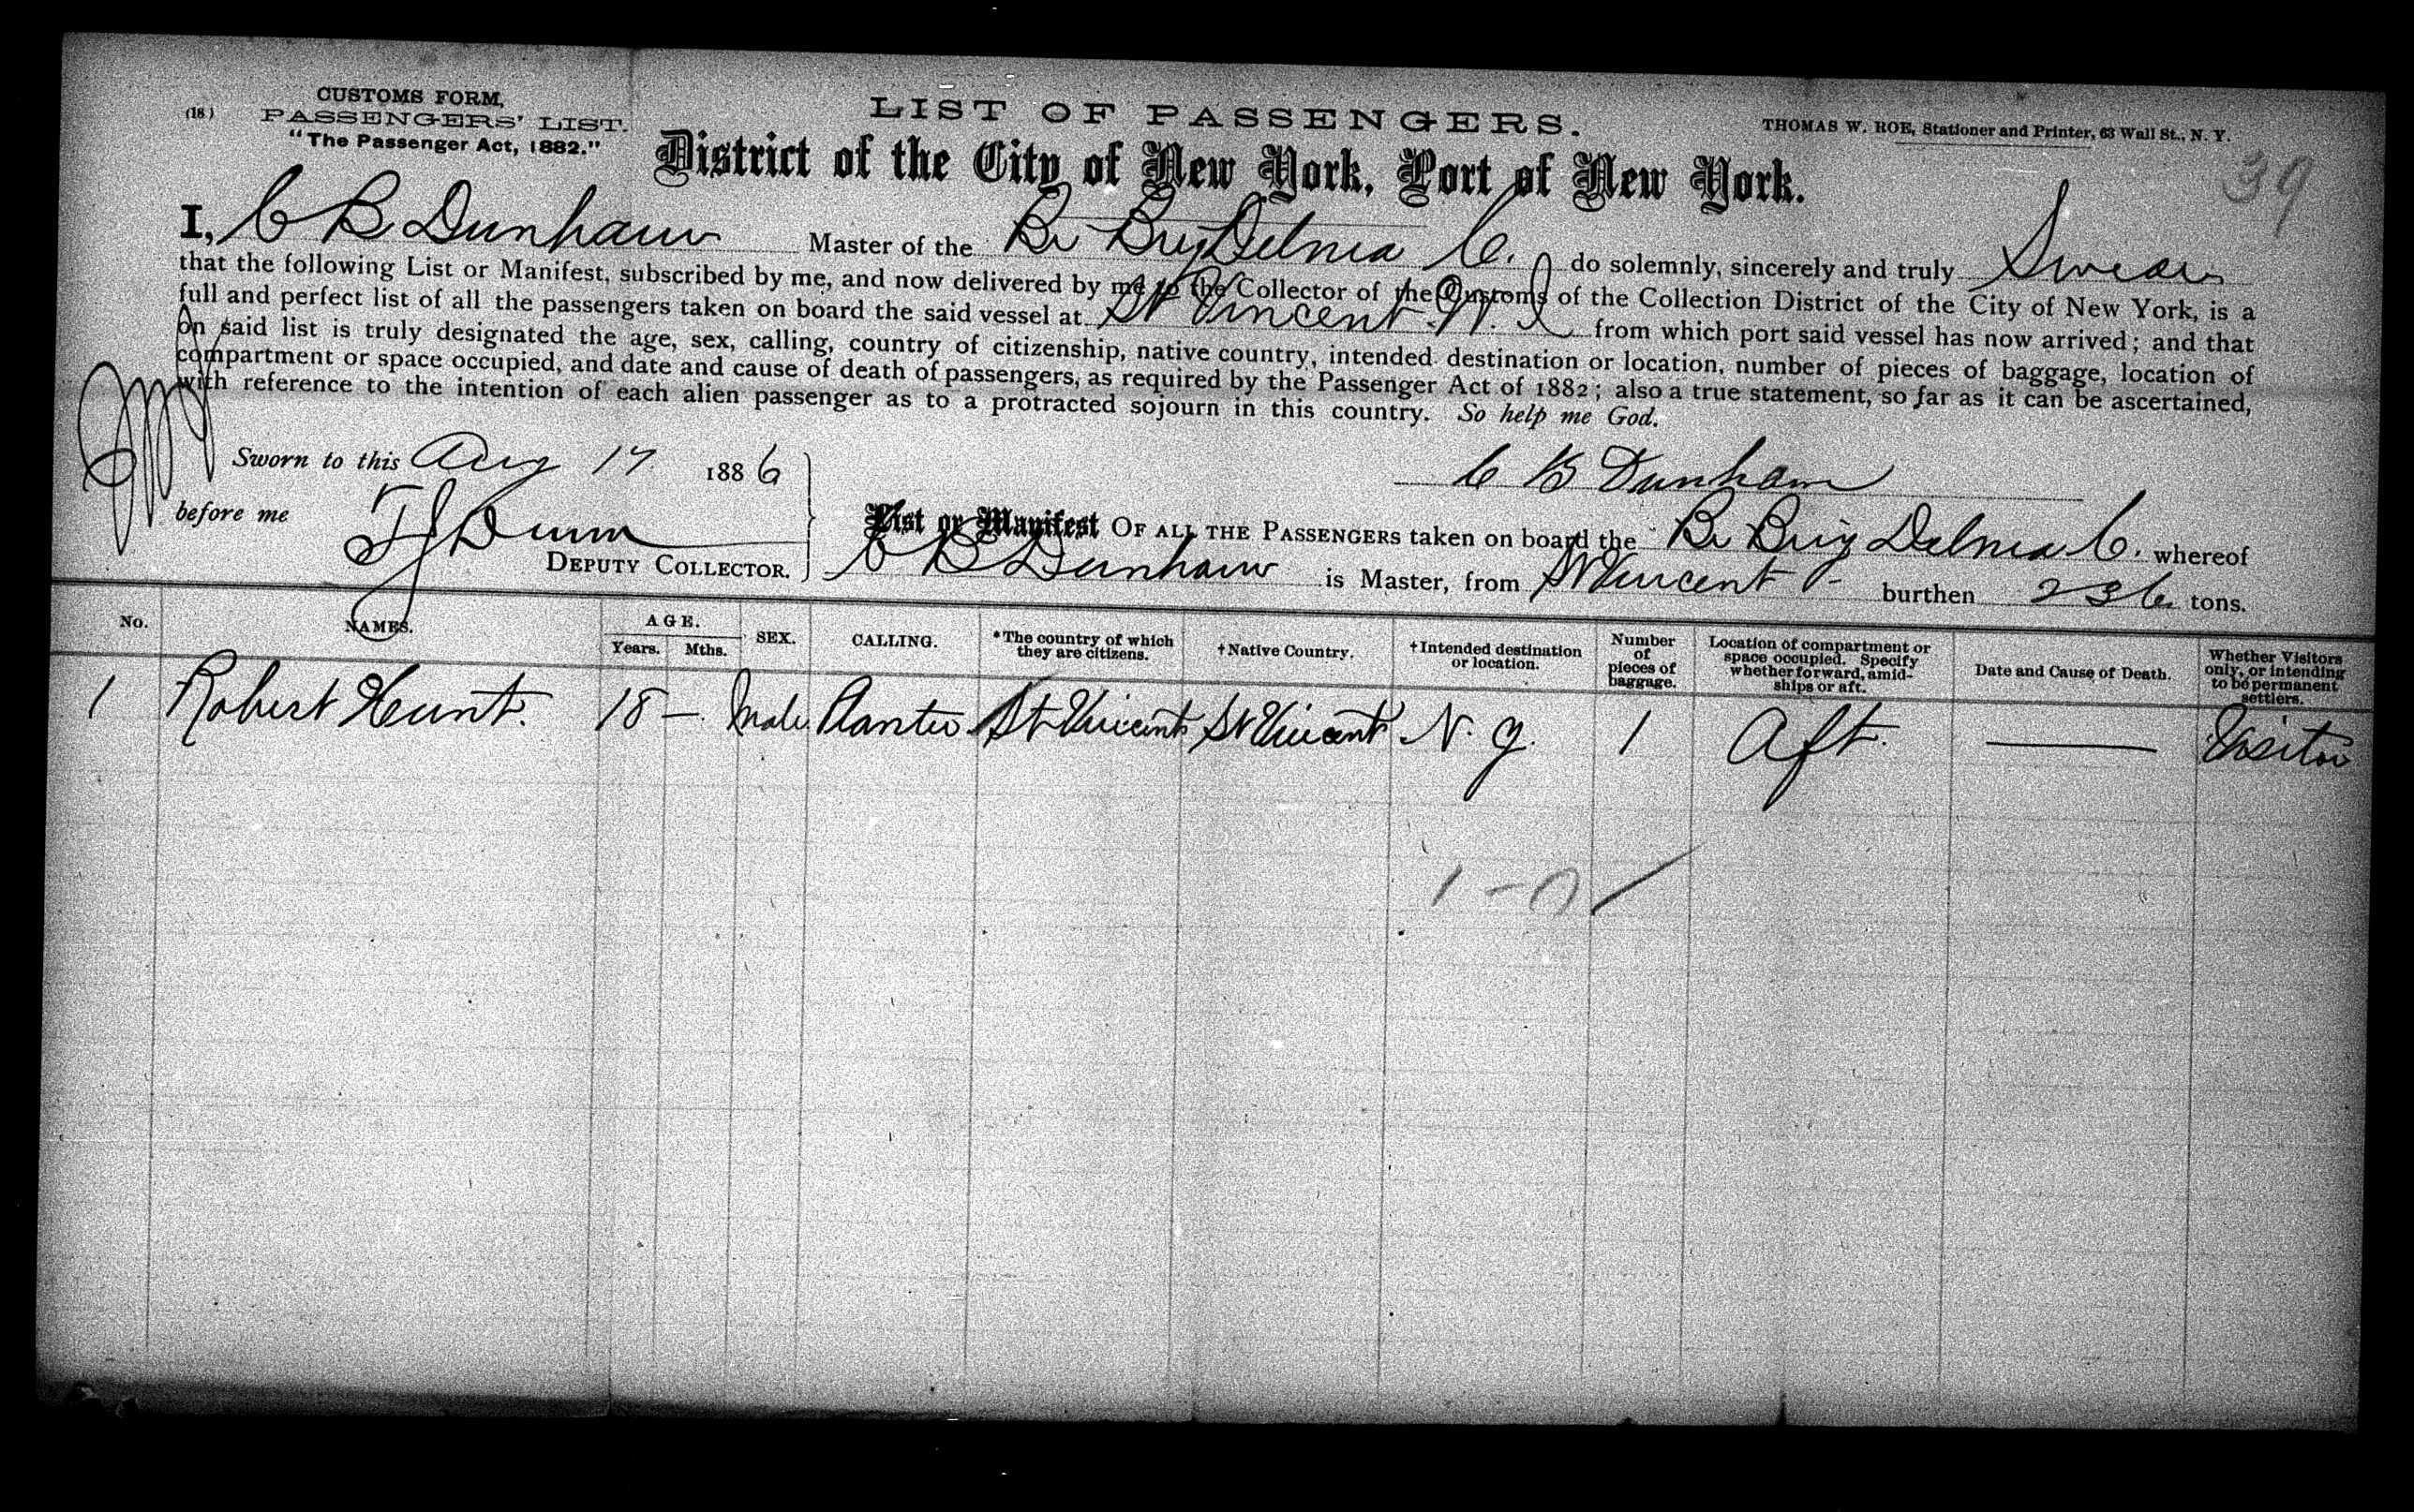 (18)
CUSTOMS FORM,
PASSENGERS' LIST.
"The Passenger Act, 1882."
LIST OF PASSENGERS.
THOMAS W. ROE, Stationer and Printer, 63 Wall St., N. Y.
39
District of the City of New York, Port of New York.
I, C B Dunham Master of the Br Brig Delmea C. do solemnly, sincerely and truly Swear
that the following List or Manifest, subscribed by me, and now delivered by me to the Collector of the Customs of the Collection District of the City of New York, is a
full and perfect list of all the passengers taken on board the said vessel at St Vincent W. I from which port said vessel has now arrived; and that
on said list is truly designated the age, sex, calling, country of citizenship, native country, intended destination or location, number of pieces of baggage, location of
compartment or space occupied, and date and cause of death of passengers, as required by the Passenger Act of 1882; also a true statement, so far as it can be ascertained,
with reference to the intention of each alien passenger as to a protracted sojourn in this country. So help me God.
Sworn to this Aug 17 1886
C B Dunham
before me
T J Dunn
DEPUTY COLLECTOR.
List or Manifest OF ALL THE PASSENGERS taken on board the Br Brig Delmea C. whereof
C B Dunham is Master, from St Vincent burthen 236 tons.
No. NAMES. AGE. Years. Mths. SEX. CALLING. *The country of which they are citizens. †Native Country. †Intended destination or location. Number of pieces of baggage. Location of compartment or space occupied. Specify whether forward, amidships or aft. Date and Cause of Death. Whether Visitors only, or intending to be permanent settlers.
1 Robert Hunt. 18 — Male Planter St Vincent St Vincent N. Y. 1 Aft. — Visitor